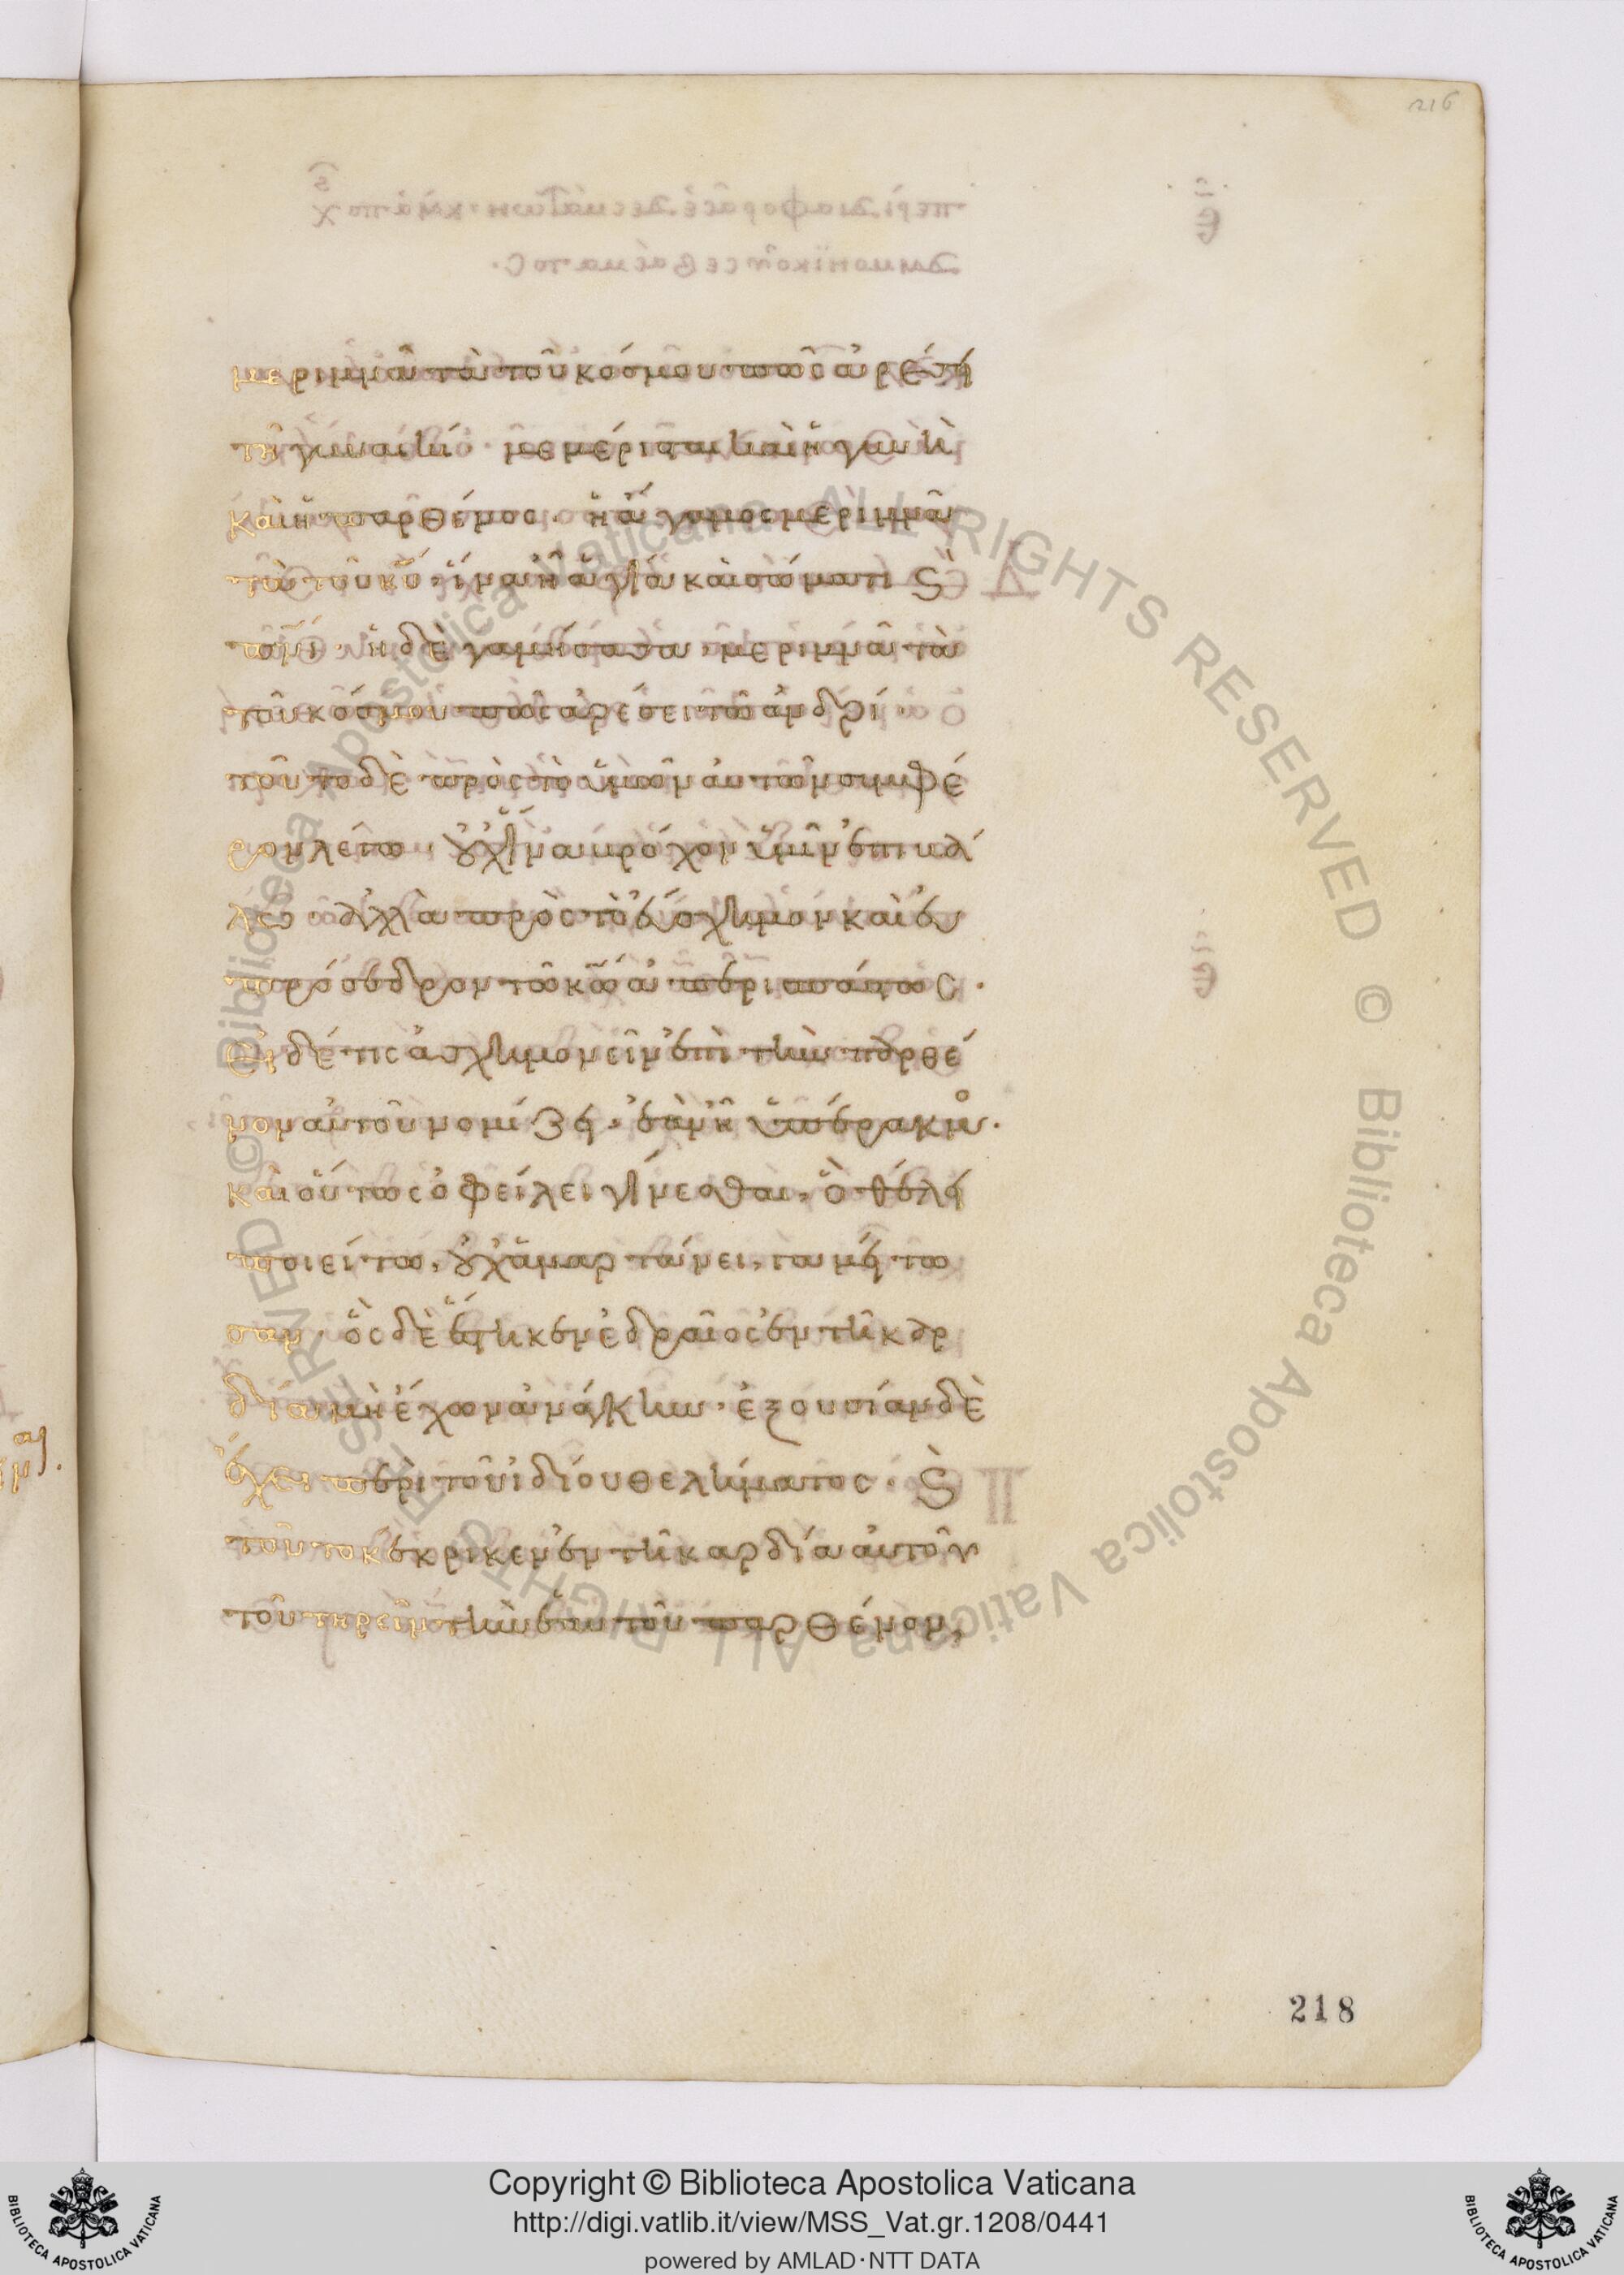 216
μεριμνᾶ τὰ τοῦ κόσμου πῶς ἀρέσει
τῆ γυναικί· μεμέρισται καὶ ἡ γυνὴ
καὶ ἡ παρθένος· ἡ ἄγαμος μεριμνᾶ
τὰ τοῦ κυ· ἵνα ἦ ἁγία καὶ σώματι ϗ
πνι· ἡ δὲ γαμήσασα· μεριμνᾶ τὰ
τοῦ κόσμου πῶς ἀρέσει τῶ ἀνδρί·
τοῦτο δὲ πρὸς τὸ ὑμῶν αὐτῶν συμφέ
ρον λέγω· οὐχ ἵνα βρόχον ὑμῖν ἐπιβά
λω· ἀλλὰ πρὸς τὸ εὔσχημον καὶ εὐ
πρόσεδρον τῶ κω ἀπερισπάστως·
Εἰ δέ τις ἀσχημονεῖν ἐπὶ τὴν παρθέ
νον αὐτοῦ νομίζει· ἐὰν ἦ ὑπέρακμος·
καὶ οὕτως ὀφείλει γίνεσθαι, ὃ θέλει
ποιείτω, οὐχ ἁμαρτάνει, γαμείτω
σαν· ὃς δὲ ἕστηκεν ἑδραῖος ἐν τῆ καρ
δία μὴ ἔχων ἀνάγκην· ἐξουσίαν δὲ
ἔχει περὶ τοῦ ἰδίου θελήματος· ϗ
τοῦτο κέκρικεν ἐν τῆ καρδία αὐτοῦ
τοῦ τηρεῖν τὴν ἑαυτοῦ παρθένον,
218
© Biblioteca Apostolica Vaticana ALL RIGHTS RESERVED
© Biblioteca Apostolica Vaticana ALL RIGHTS RESERVED
Copyright © Biblioteca Apostolica Vaticana
http://digi.vatlib.it/view/MSS_Vat.gr.1208/0441
powered by AMLAD·NTT DATA
BIBLIOTECA APOSTOLICA VATICANA
BIBLIOTECA APOSTOLICA VATICANA